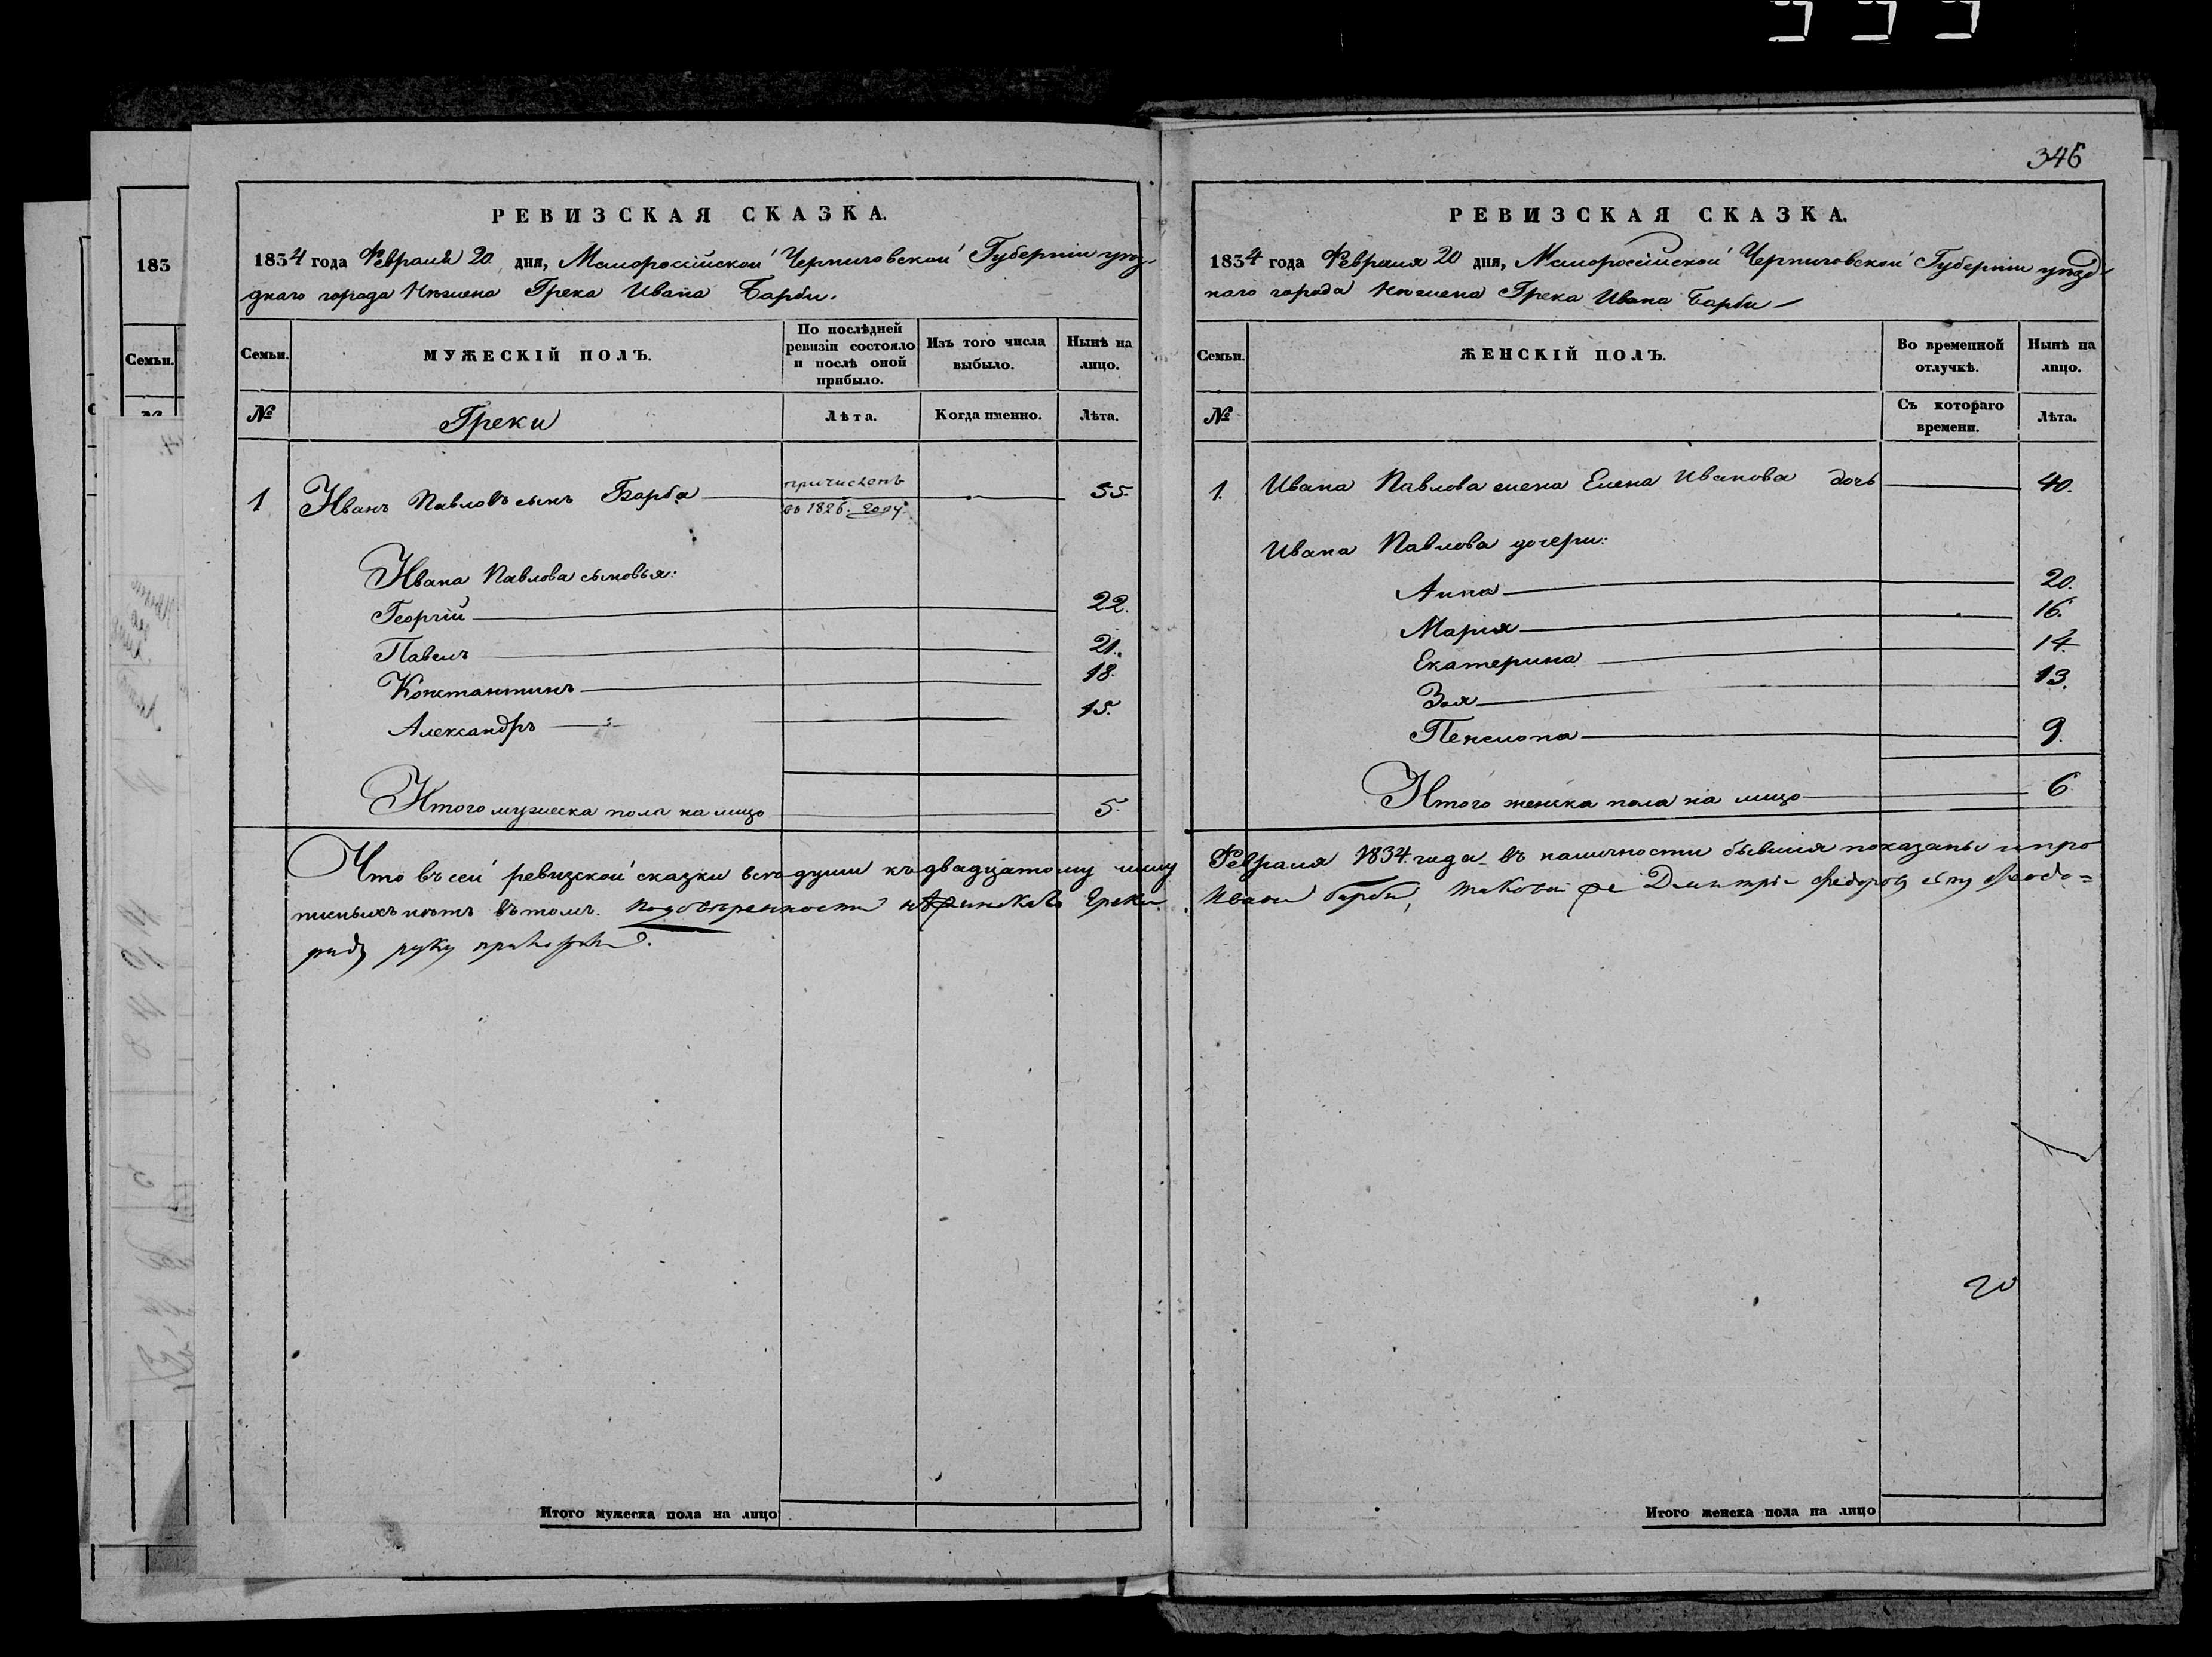 346
РЕВИЗСКАЯ СКАЗКА.
1834 года Февраля 20 дня, Малороссійской Черниговской Губерніи уѣз-
днаго города Нѣжина Грека Ивана Барбы.
Семьи.
МУЖЕСКІЙ ПОЛЪ.
По послѣдней ревизіи состояло и послѣ оной прибыло.
Изъ того числа выбыло.
Нынѣ на лицо.
№
Греки
Лѣта.
Когда именно.
Лѣта.
1 Иванъ Павловъ сынъ Барба причисленъ въ 1826. году 55.
Ивана Павлова сыновья:
Георгій 22.
Павелъ 21.
Константинъ 18.
Александръ 15.
Итого мужеска пола на лицо 5.
РЕВИЗСКАЯ СКАЗКА.
1834 года Февраля 20 дня, Малороссійской Черниговской Губерніи уѣзд-
наго города Нѣжина Грека Ивана Барбы
Семьи.
ЖЕНСКІЙ ПОЛЪ.
Во временной отлучкѣ.
Нынѣ на лицо.
№
Съ котораго времени.
Лѣта.
1. Ивана Павлова жена Елена Иванова дочь 40.
Ивана Павлова дочери:
Анна 20.
Марія 16.
Екатерина 14.
Зоя 13.
Пенелопа 9.
Итого женска пола на лицо 6.
Что въ сей ревизской сказки всѣ души къ двадцатому числу Февраля 1834 года въ наличности бывшия показаны и про
писныхъ нѣтъ въ томъ. По довѣренности нѣжинскаго Грека Ивана Барбы, таковой же Дмитрій Федоровъ сынъ
руку приложилъ.
20
Итого мужеска пола на лицо
Итого женска пола на лицо
183
Семьи.